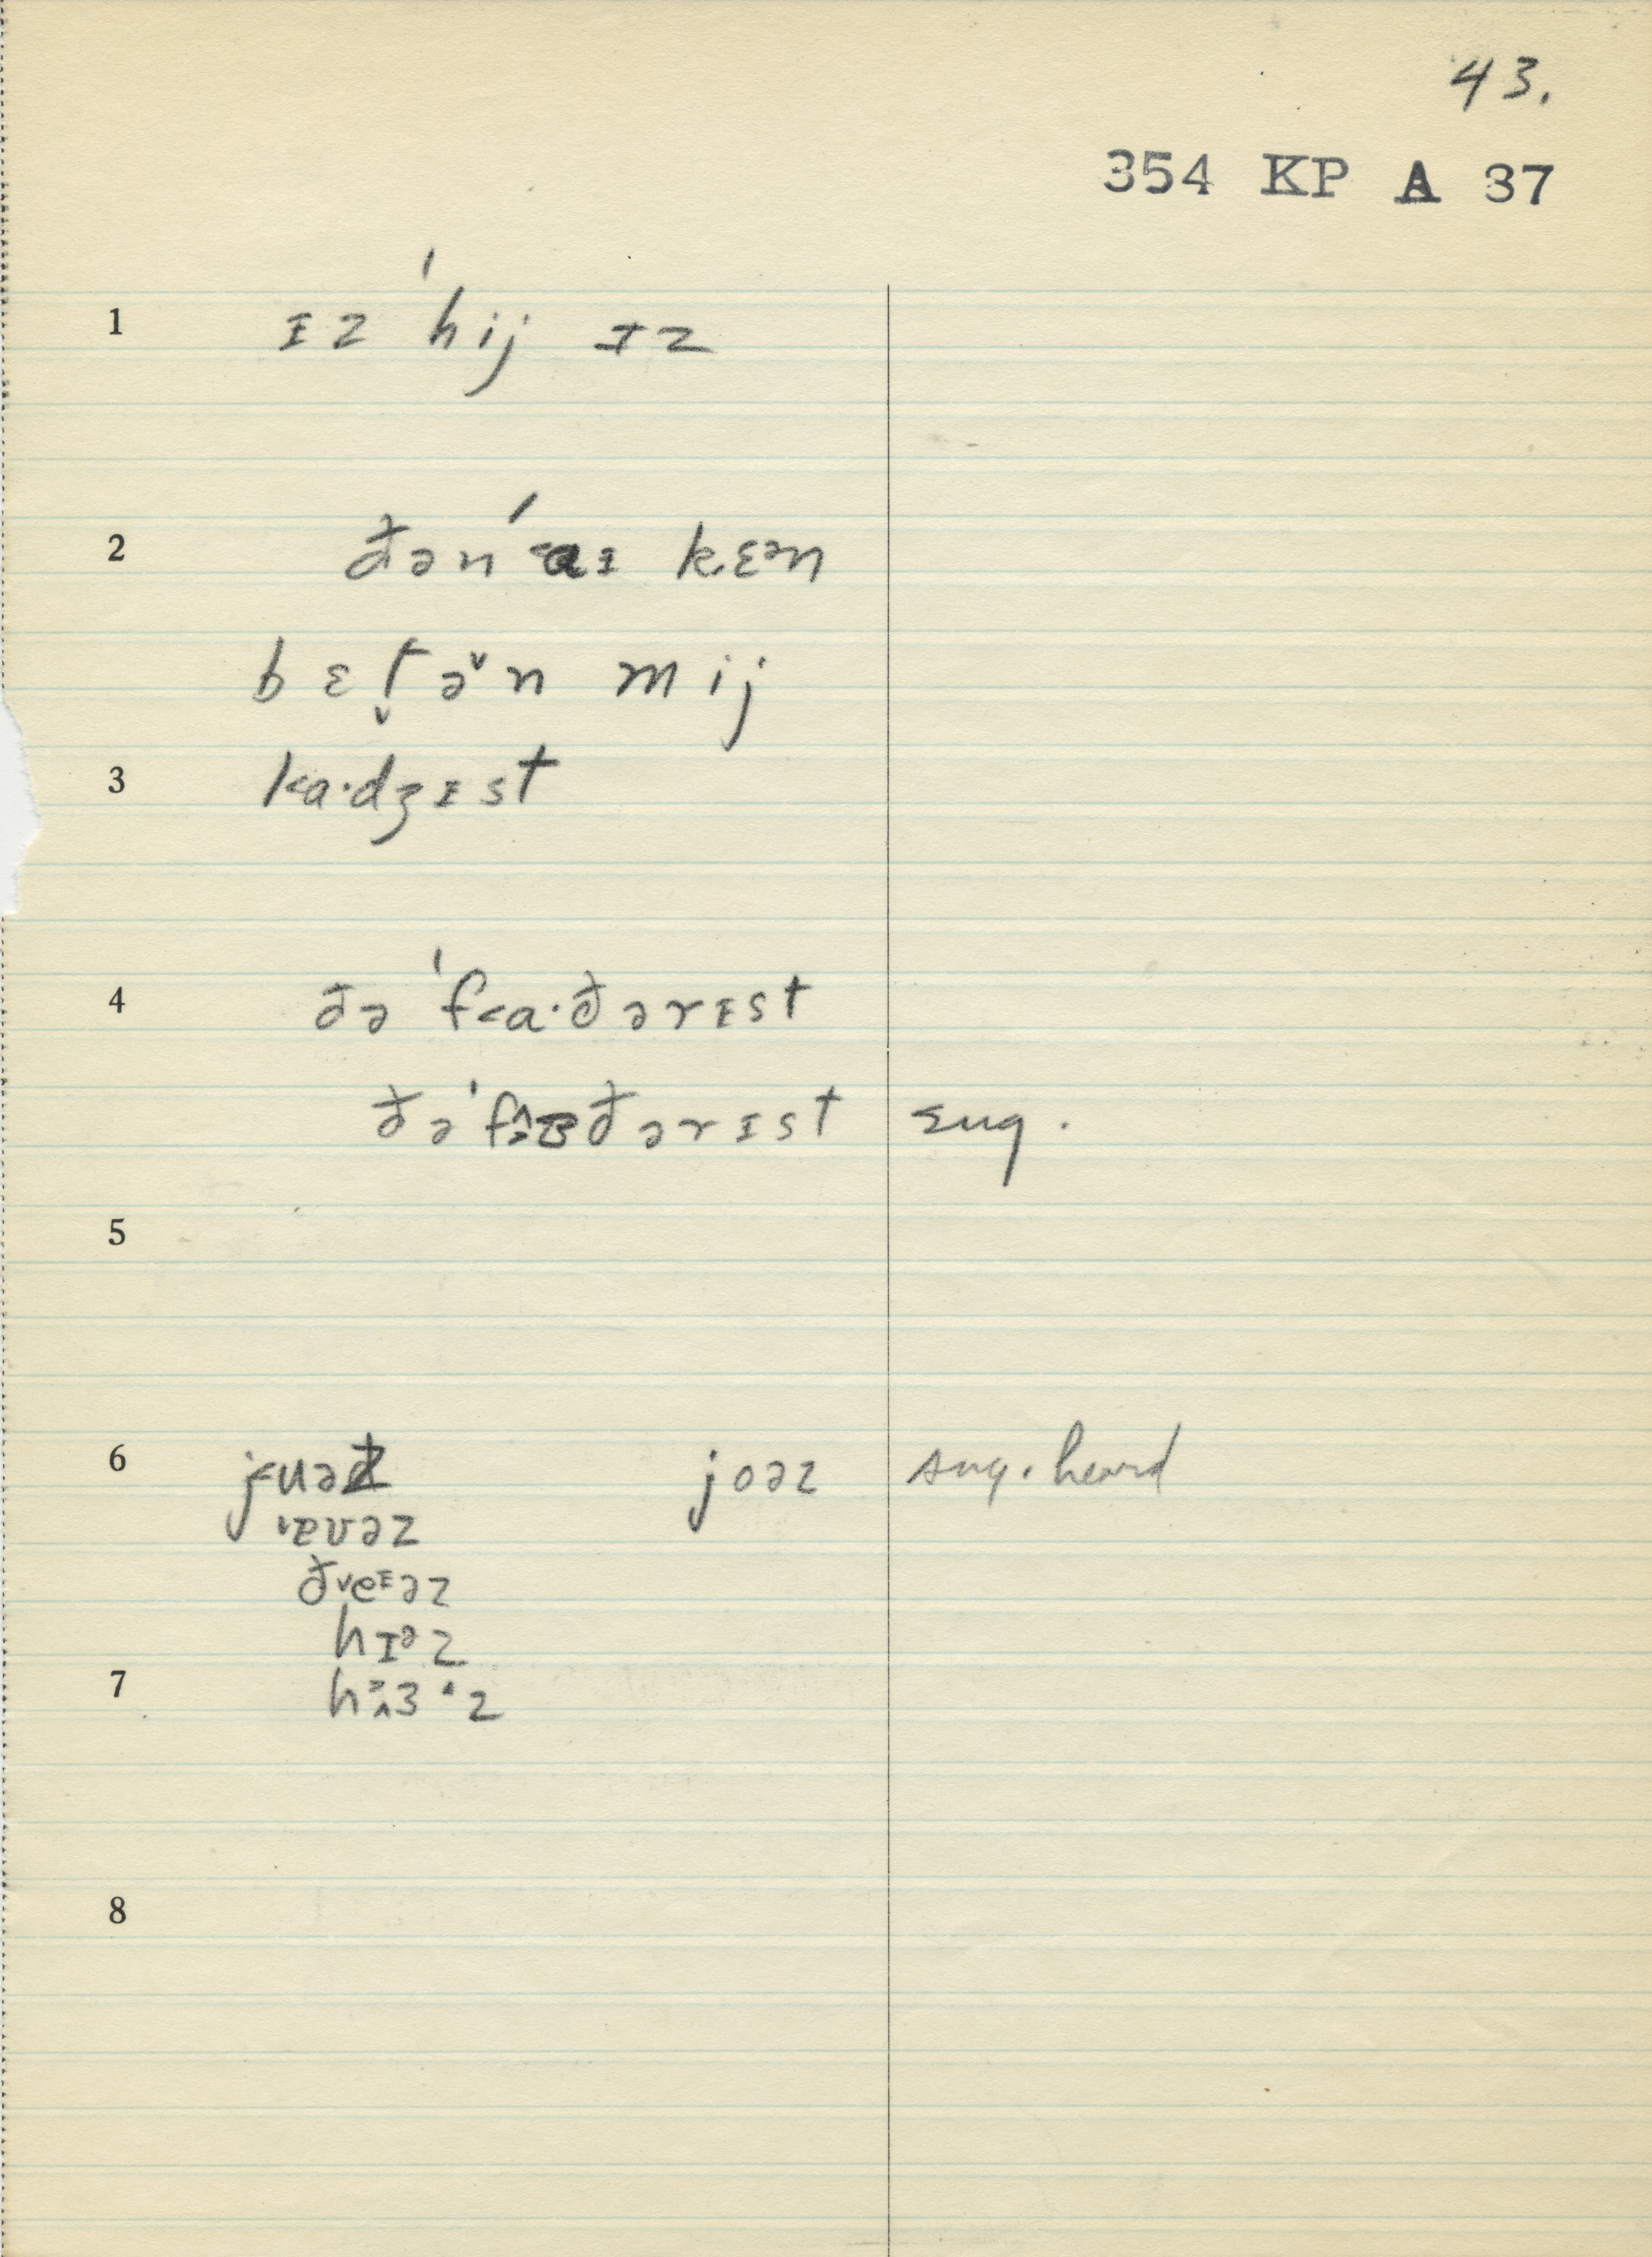 43.
354 KP A 37
1 ɪz ˈhij ɪz
2 ðən ˈaɪ kɛən
bɛt̬ə˅n mij
3 k<a·dʒɪst
4 ðə ˈf<a·ðərɪst
ðə ˈfɜðərɪst sug.
5
6 j<uəz joəz sug. heard
ˈɐʊəz
ð˅eɪəz
hɪəz
7 hɜ·z
8